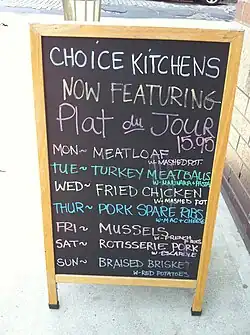 CHOICE KITCHENS
NOW FEATURING
Plat du Jour
15.95
MON~ MEATLOAF
W-MASHED POT
TUE~ TURKEY MEATBALLS
W-MARINARA + PASTA
WED~ FRIED CHICKEN
W-MASHED POT
THUR~ PORK SPARE RIBS
W-MAC + CHEESE
FRI~ MUSSELS
W-FRENCH FRIES
SAT~ ROTISSERIE PORK
W-ESCAROLE
SUN~ BRAISED BRISKET
W-RED POTATOES